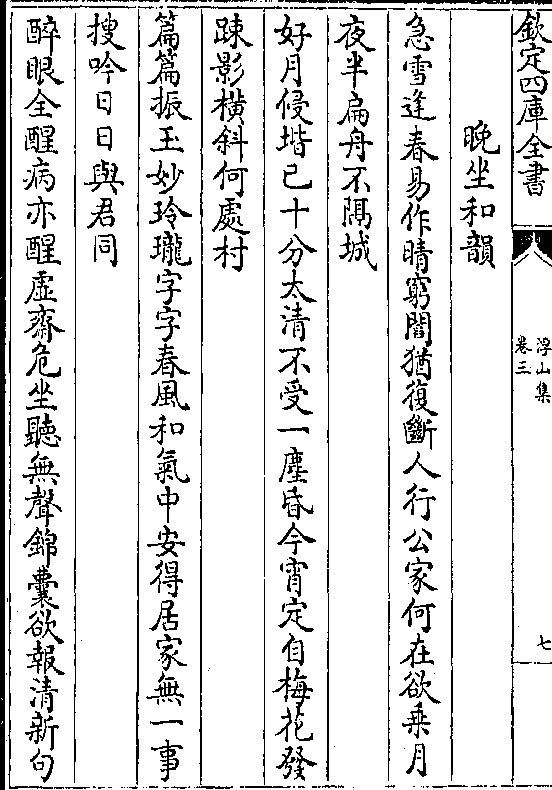 欽定四庫全書
浮山集
卷三
七
晚坐和韻
急雪逢春易作晴窮閻猶復斷人行公家何在欲乗月
夜半扁舟不隔城
好月侵堦已十分太清不受一塵昏今宵定自梅花發
踈影橫斜何處村
篇篇振玉妙玲瓏字字春風和氣中安得居家無一事
搜吟日日與君同
醉眼全醒病亦醒虛齋危坐聽無聲錦囊欲報清新句